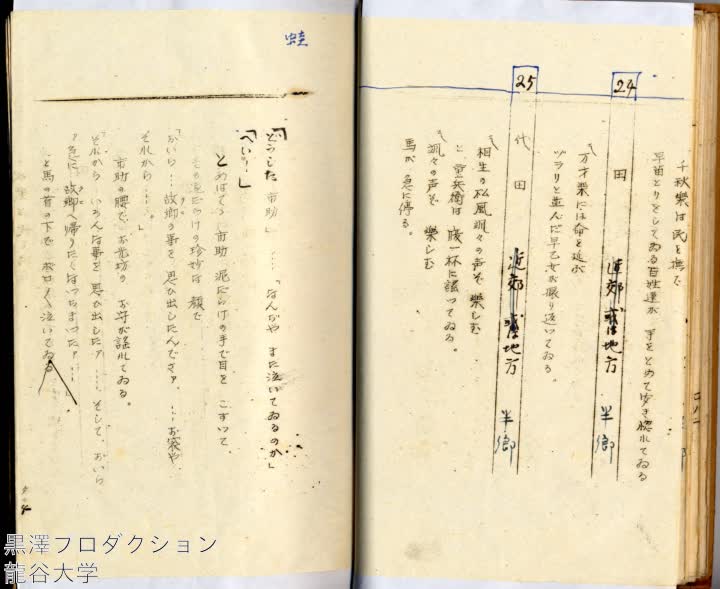 千秋楽は民を撫で
早苗とりをしてゐる百姓達が 手をとめて歩き惚れてゐる
24
田
近郊 或は地方
半郷
万才楽には命を延ぶ
ヅラリと並んだ早乙女が振り返つてゐる。
25
代田
近郊 或は地方
半郷
相生の松風颯々の声ぞ 楽しむ
と 重兵衛は 腹一杯に謡つてゐる。
颯々の声ぞ 楽しむ
馬が 急に停る。
蛙
「どうした 市助」……「なんだや また泣いてゐるのか」
「へい……」
とめばてゝ 市助 泥だらけの手で目を こすつて
その泥だらけの珍妙な 顔で
「おいら…… 故郷の事を 思ひ出したんでさァ、…… お袋や
それから……」
市助の腰で お花坊の お守が謡れてゐる。
「それから いろんな事を 思ひ出したァ …… そして、おいら
急に 故郷へ帰りたくなつちまつたァ……」
と馬の首の下で ポロポロ泣いてゐる
黒澤プロダクション
龍谷大学